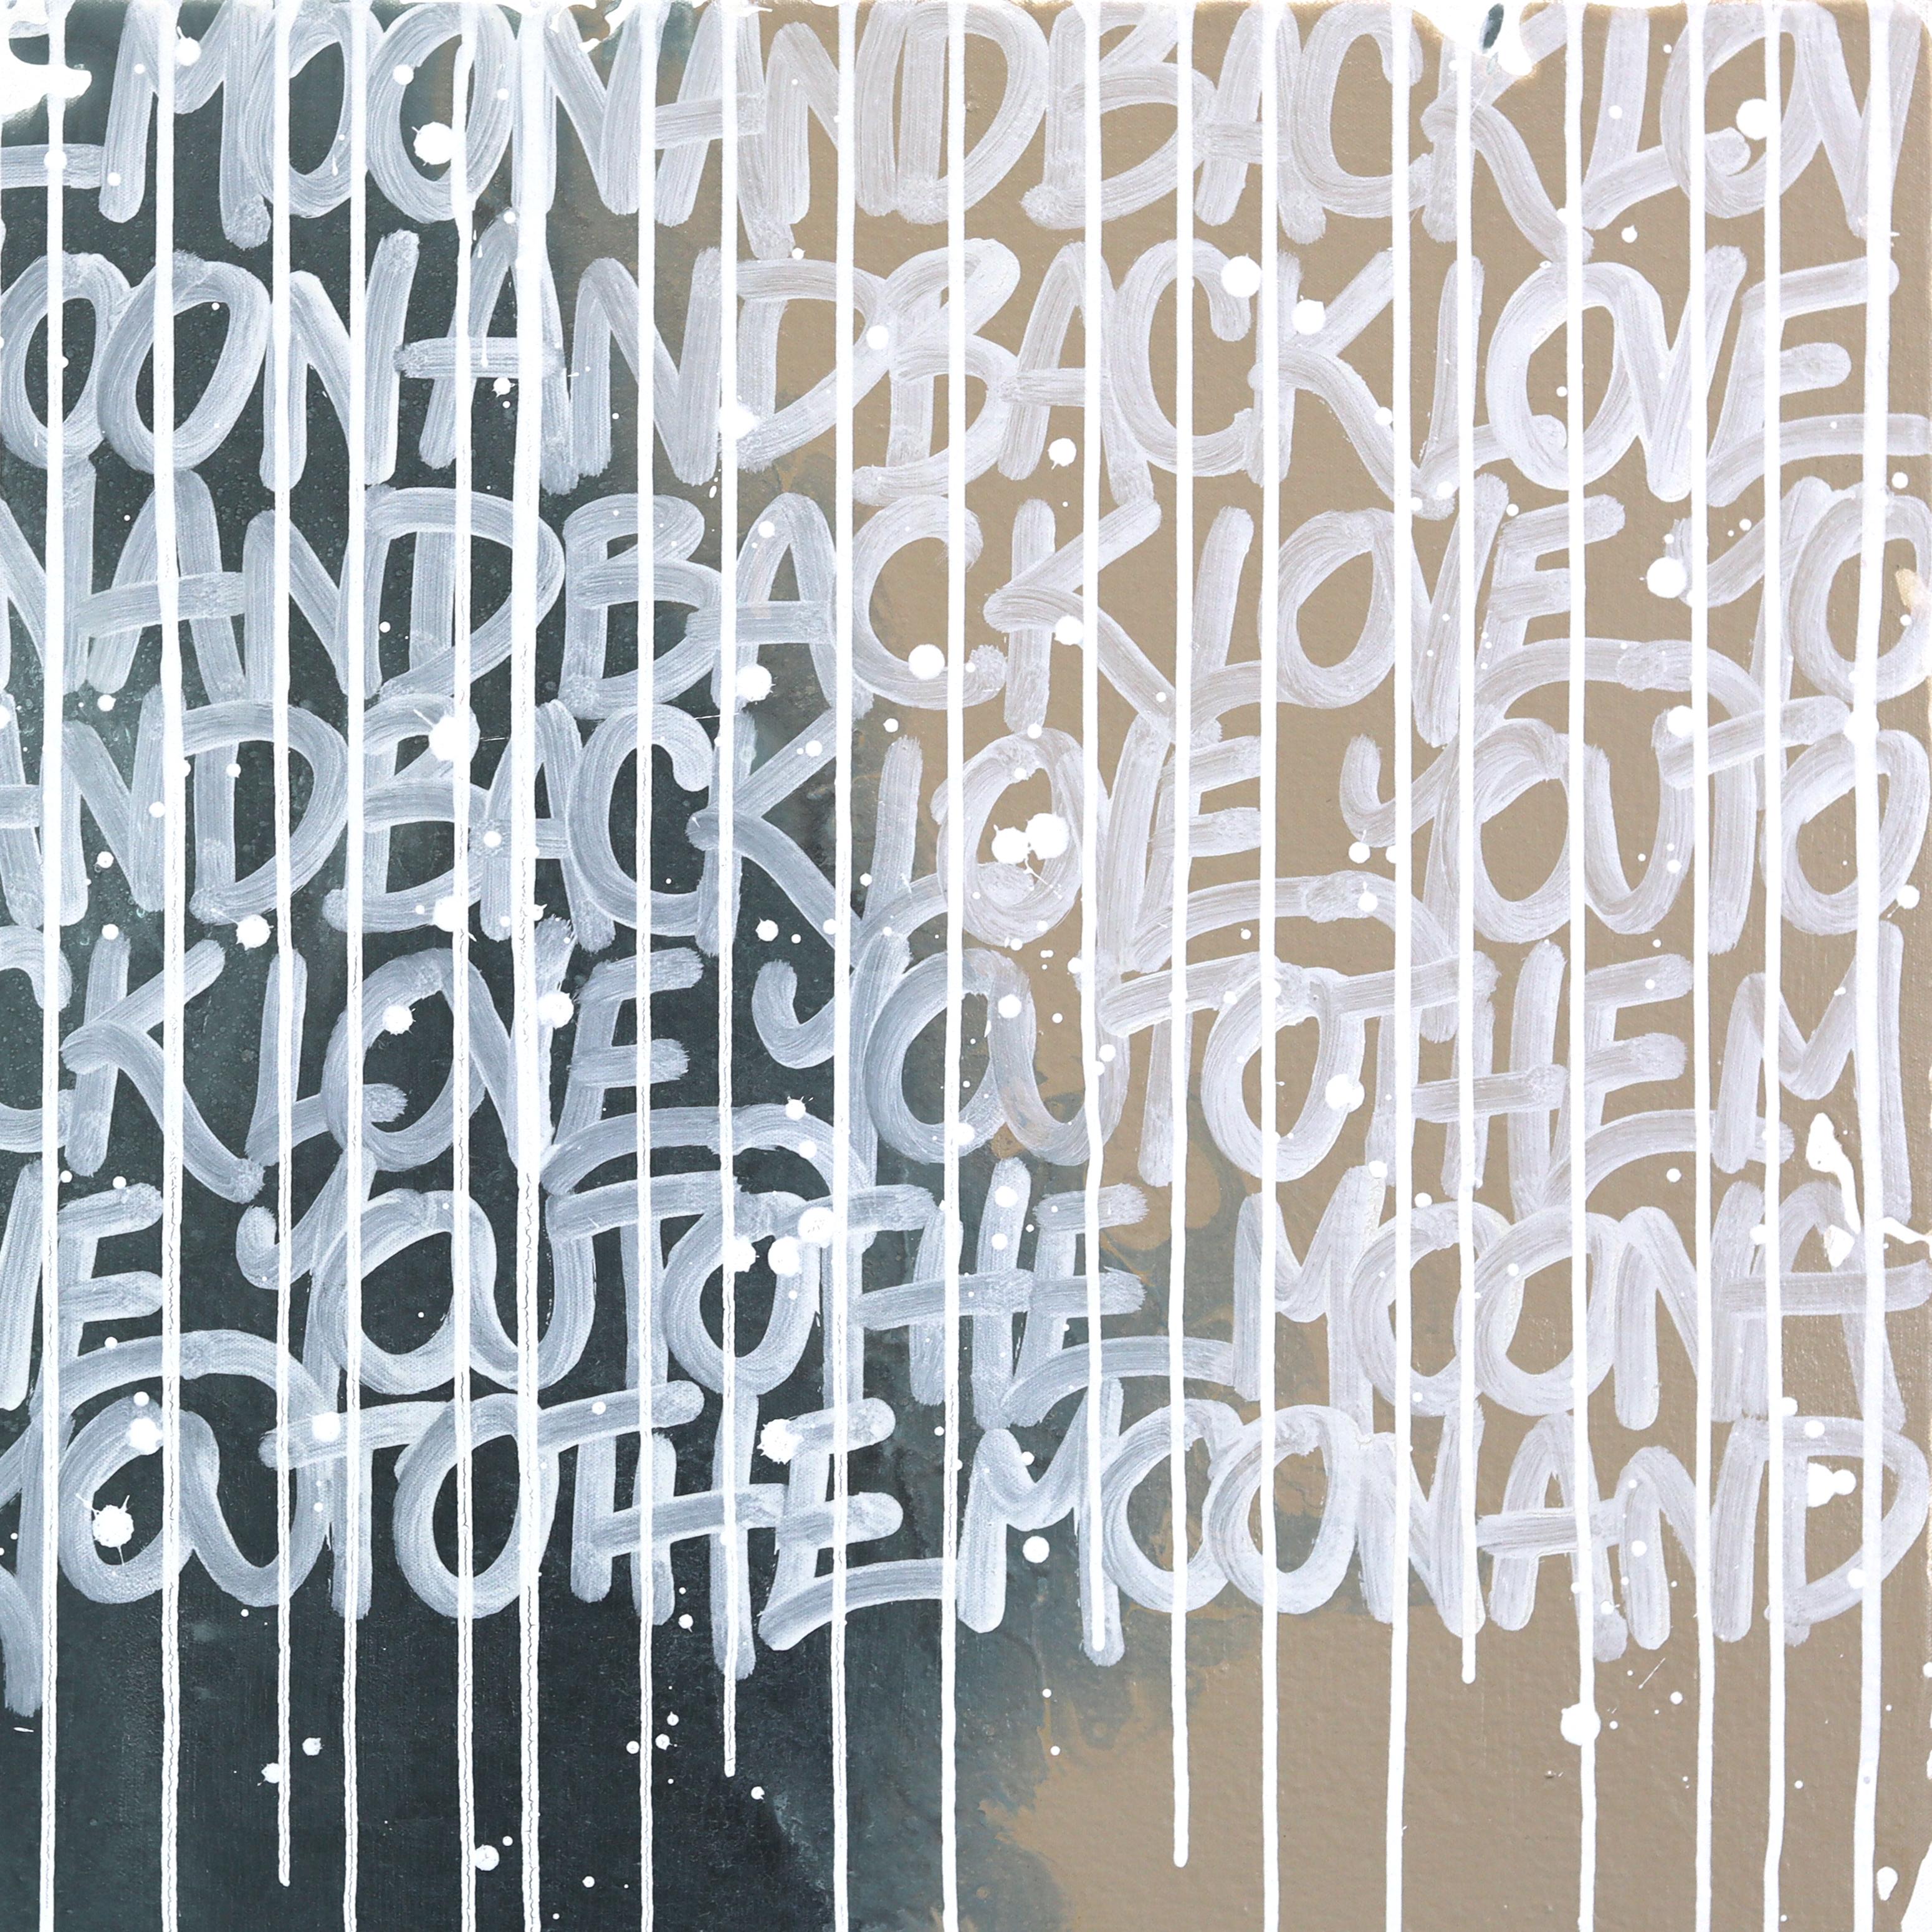 E MOON AND BACK LOV
OON AND BACK LOVE
N AND BACK LOVE YO
AND BACK LOVE YOU TO
CK LOVE YOU TO THE M
VE YOU TO THE MOON A
YOU TO THE MOON AND